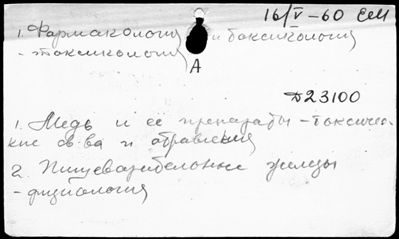 16/V-60 Сем
1. Фармакология и токсикология
- токсикология
А
Д23100
1. Медь и её препараты - токсичес-
кие св-ва и отравления
2. Пищеварительные железы
- физиология